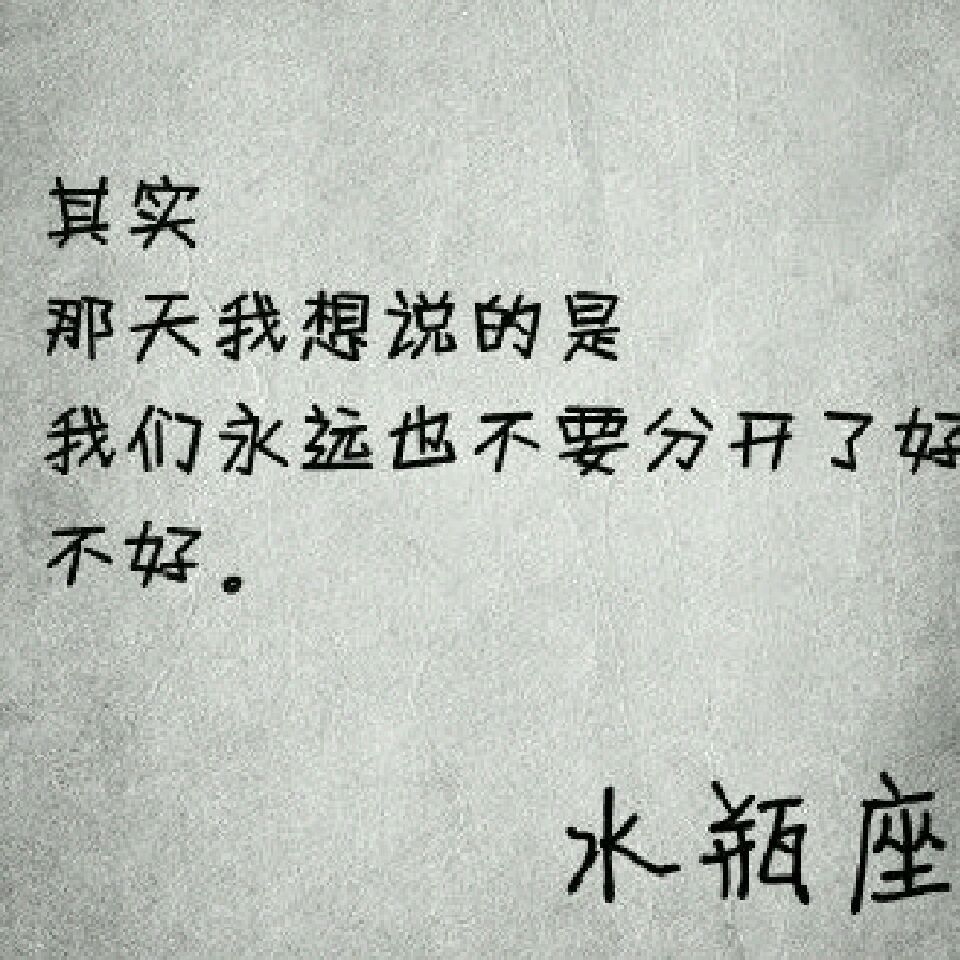 其实
那天我想说的是
我们永远也不要分开了好
不好.
水瓶座